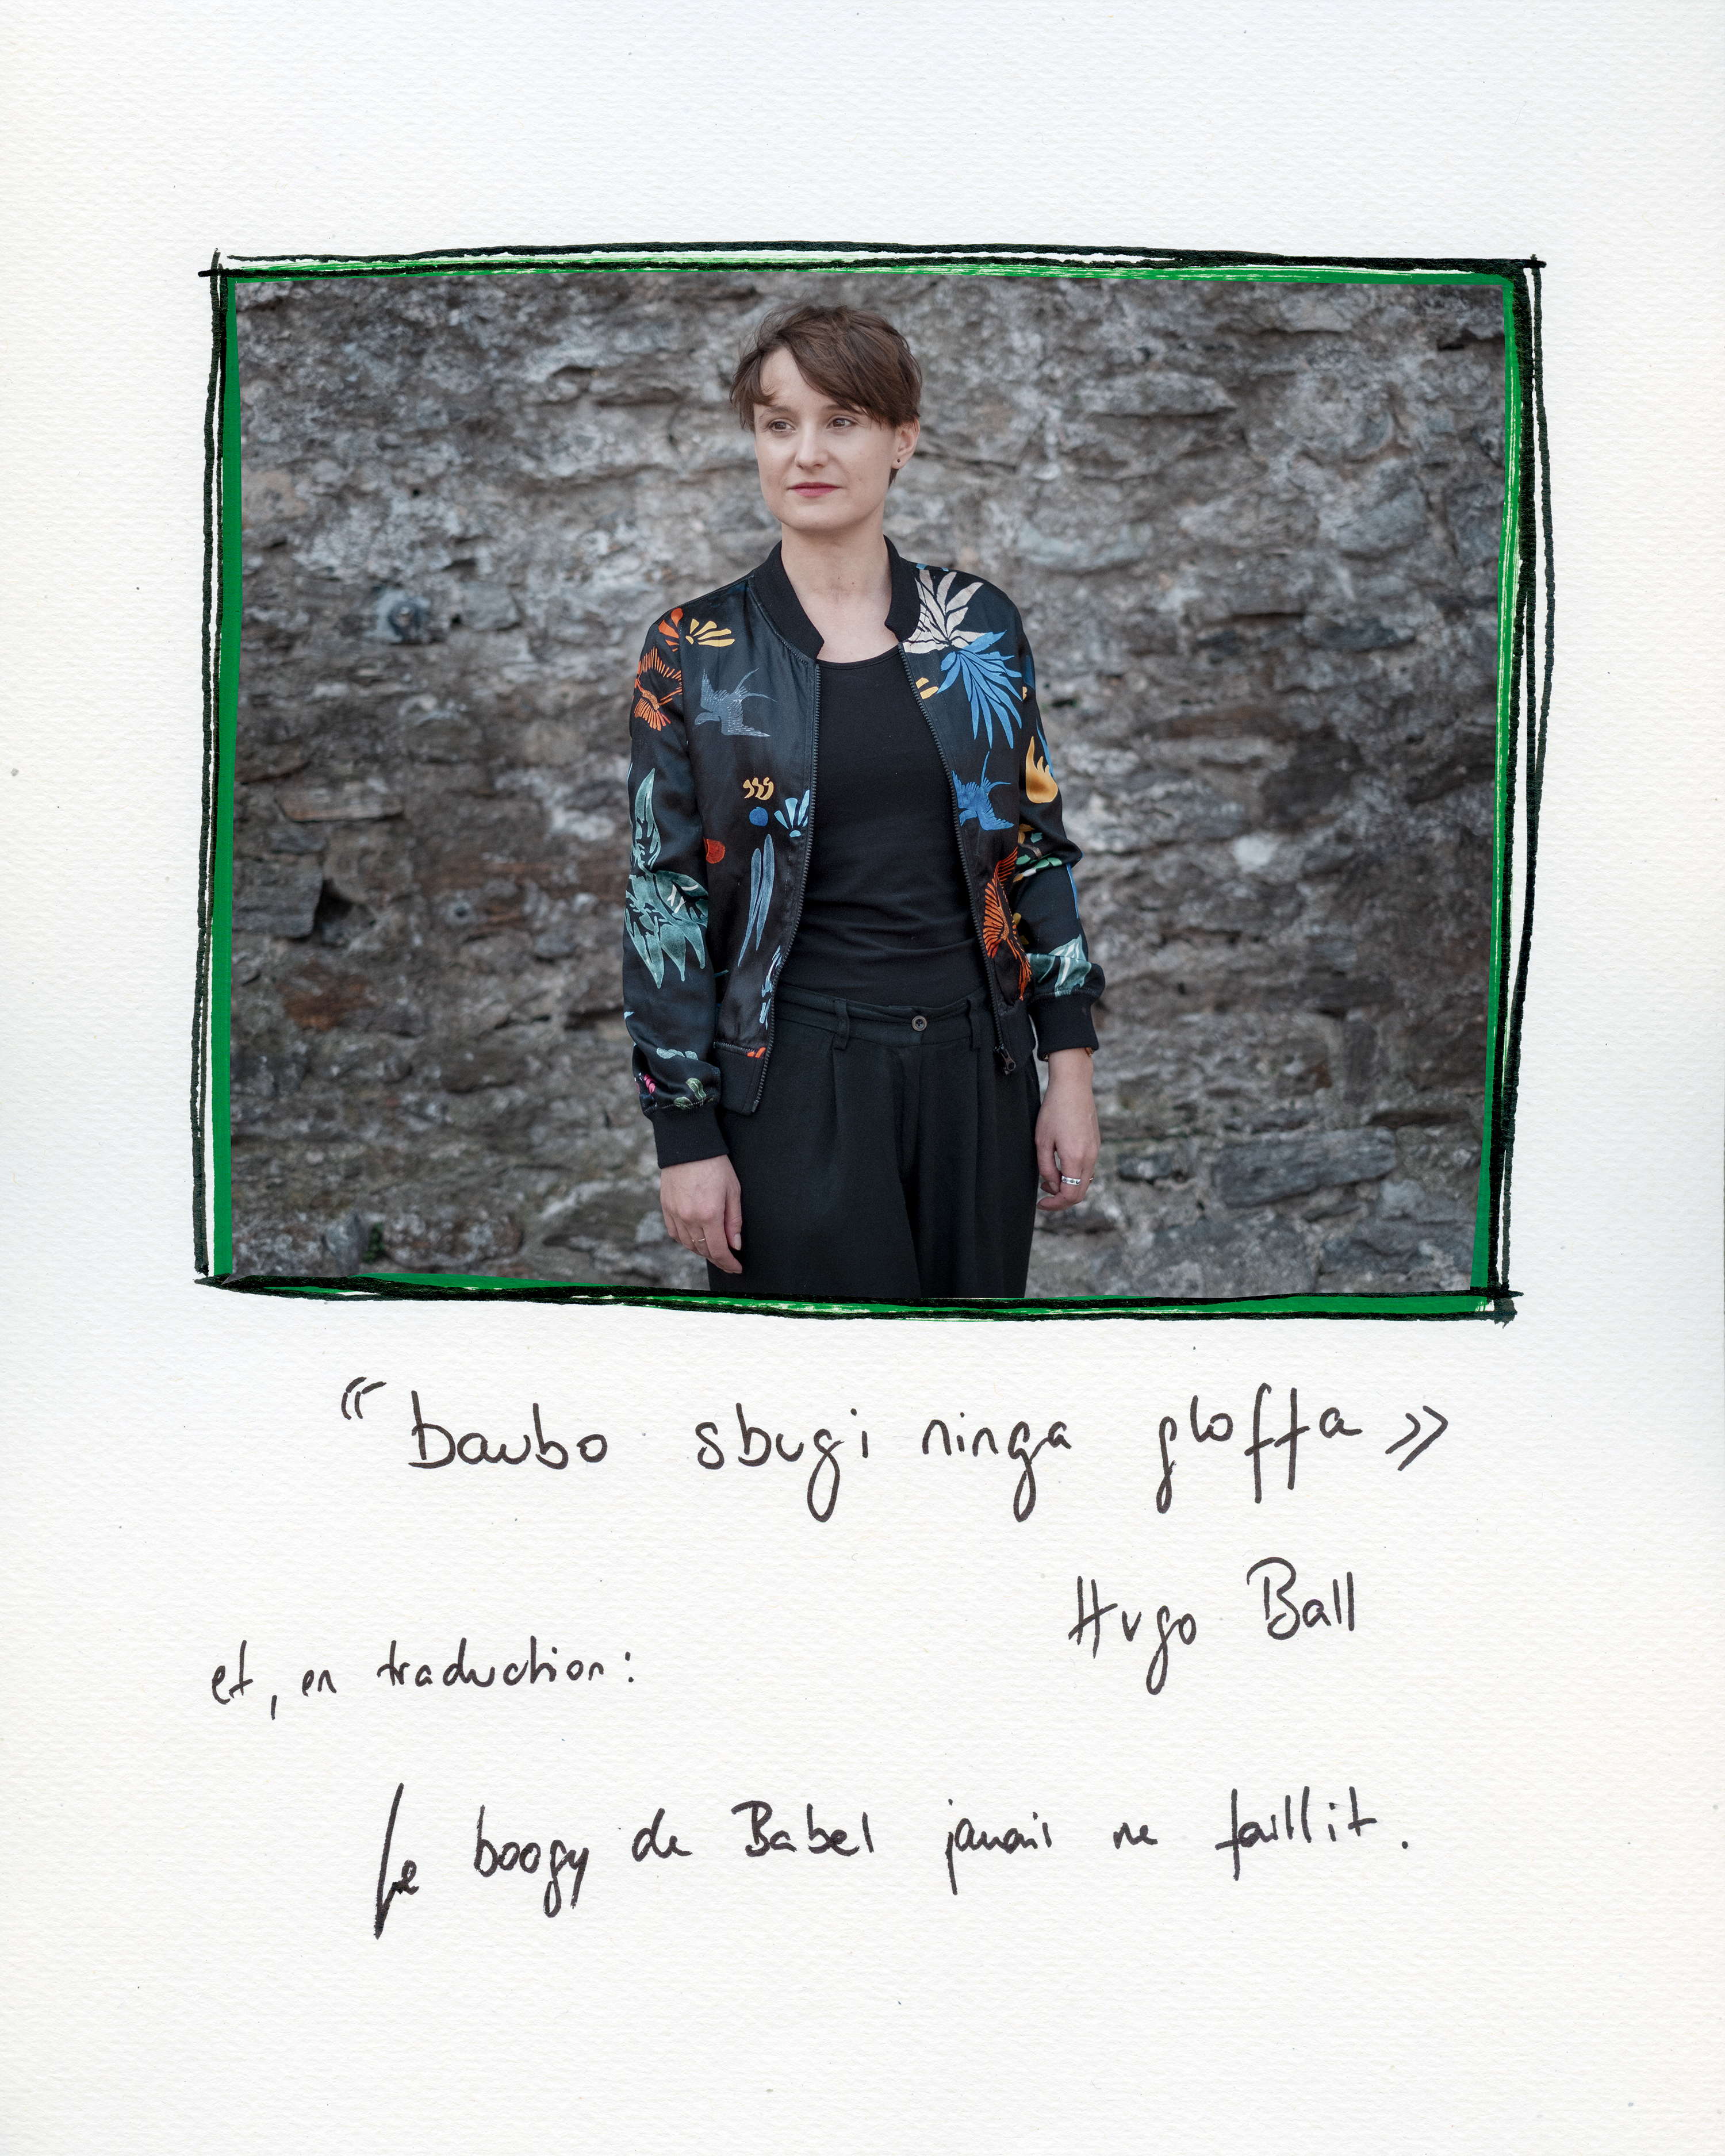 “ baubo sbugi ninga gloffa »
Hugo Ball
et, en traduction :
Le boogy de Babel jamais ne faillit.